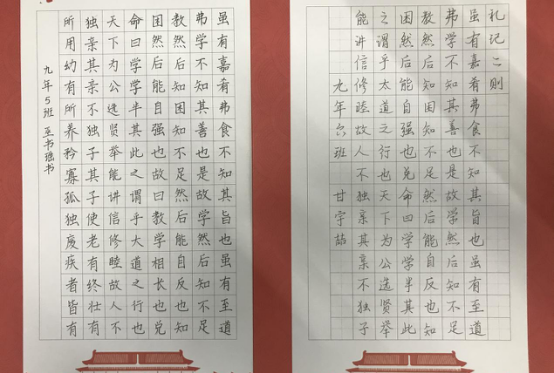 虽有嘉肴弗食不知其旨也虽有至道
弗学不知其善也是故学然后知不足
教然后知困知不足然后能自反也知
困然后能自强也故曰教学相长也兑
命曰学学半其此之谓乎大道之行也
天下为公选贤举能讲信修睦故人不
独亲其亲不独子其子使老有终壮有
所用幼有所养矜寡孤独废疾者皆有
九年5班 书
礼记二则
虽有嘉肴弗食不知其旨也虽有至道
弗学不知其善也是故学然后知不足
教然后知困知不足然后能自反也知
困然后能自强也兑命曰学学半其此
之谓乎大道之行也天下为公选贤举
能讲信修睦故人不独亲其亲不独子
九年六班 甘宇